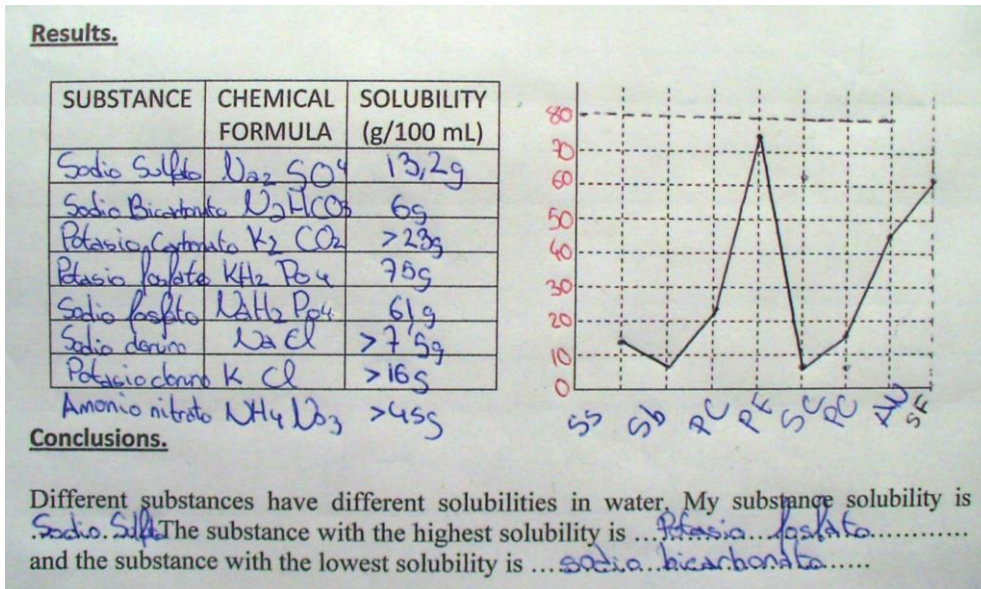 Results.
SUBSTANCE CHEMICAL FORMULA SOLUBILITY (g/100 mL)
Sodio Sulfato Na2 SO4 13,2g
Sodio Bicarbonato NaHCO3 6g
Potasio Carbonato K2 CO2 >23g
Potasio fosfato KH2 PO4 75g
Sodio fosfato NaH2 PO4 61g
Sodio cloruro Na Cl >7'5g
Potasio cloruro K Cl >16g
Amonio nitrato NH4 NO3 >45g
80
70
60
50
40
30
20
10
0
SS Sb PC PF SC PC AN SF
Conclusions.
Different substances have different solubilities in water. My substance solubility is
Sodio Sulfato The substance with the highest solubility is ... Potasio fosfato
and the substance with the lowest solubility is ... sodio bicarbonato